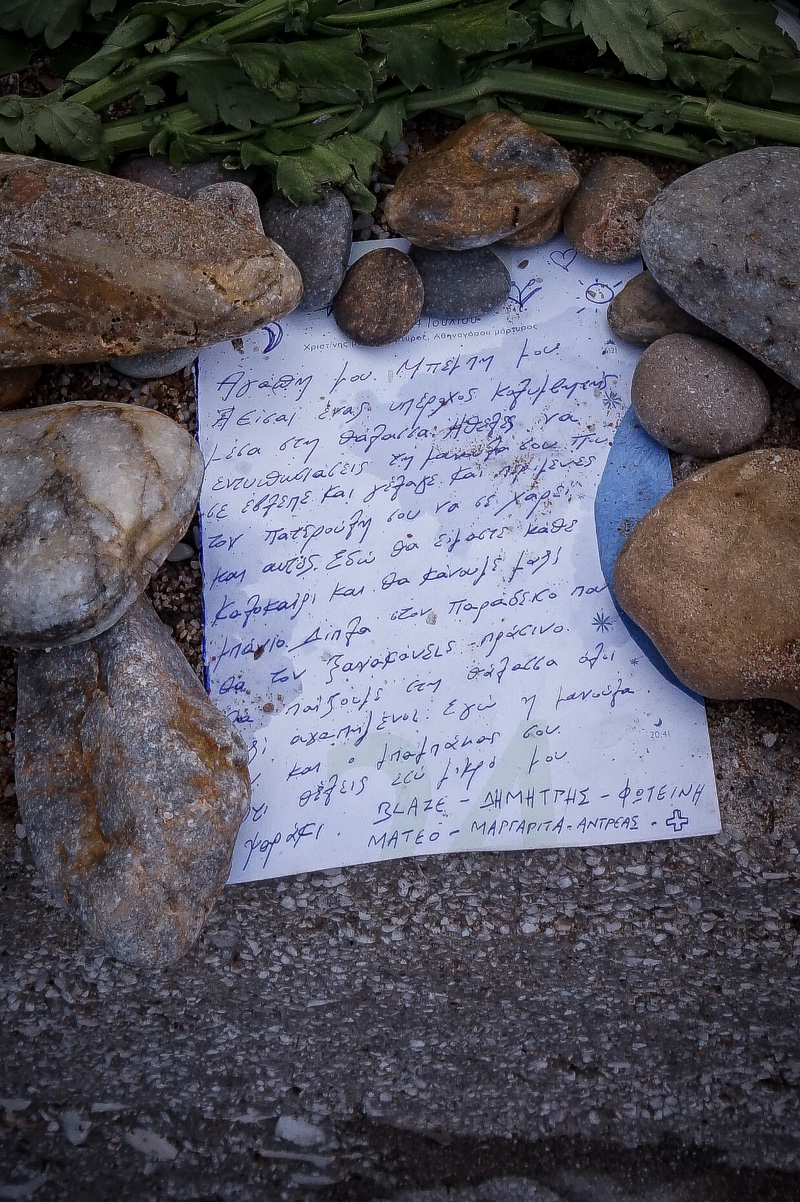 Ιουλίου
Χριστίνης μεγαλομάρτυρος, Αθηναγόρου μάρτυρος
Αγάπη μου. Μπέμπη μου
Είσαι ένας υπέροχος κολυμβητής
μέσα στη θάλασσα. Ήθελες να
εντυπωσιάσεις τη μανούλα σου που
σε έβλεπε και γέλαγε και
τον πατερούλη σου να σε χαρεί
και αυτός. Εδώ θα είμαστε κάθε
καλοκαίρι και θα κάνουμε μαζί
μπάνιο. Δίπλα στον παράδεισο που
θα τον ξανακάνεις πράσινο.
θα παίζουμε στη θάλασσα όλοι
αγαπημένοι. Εγώ η μανούλα
και ο μπαμπάκας σου.
ότι θέλεις εσύ μικρό μου
ψαράκι. BLAZE - ΔΗΜΗΤΡΗΣ - ΦΩΤΕΙΝΗ
ΜΑΤΕΟ - ΜΑΡΓΑΡΙΤΑ - ΑΝΤΡΕΑΣ -
20:41